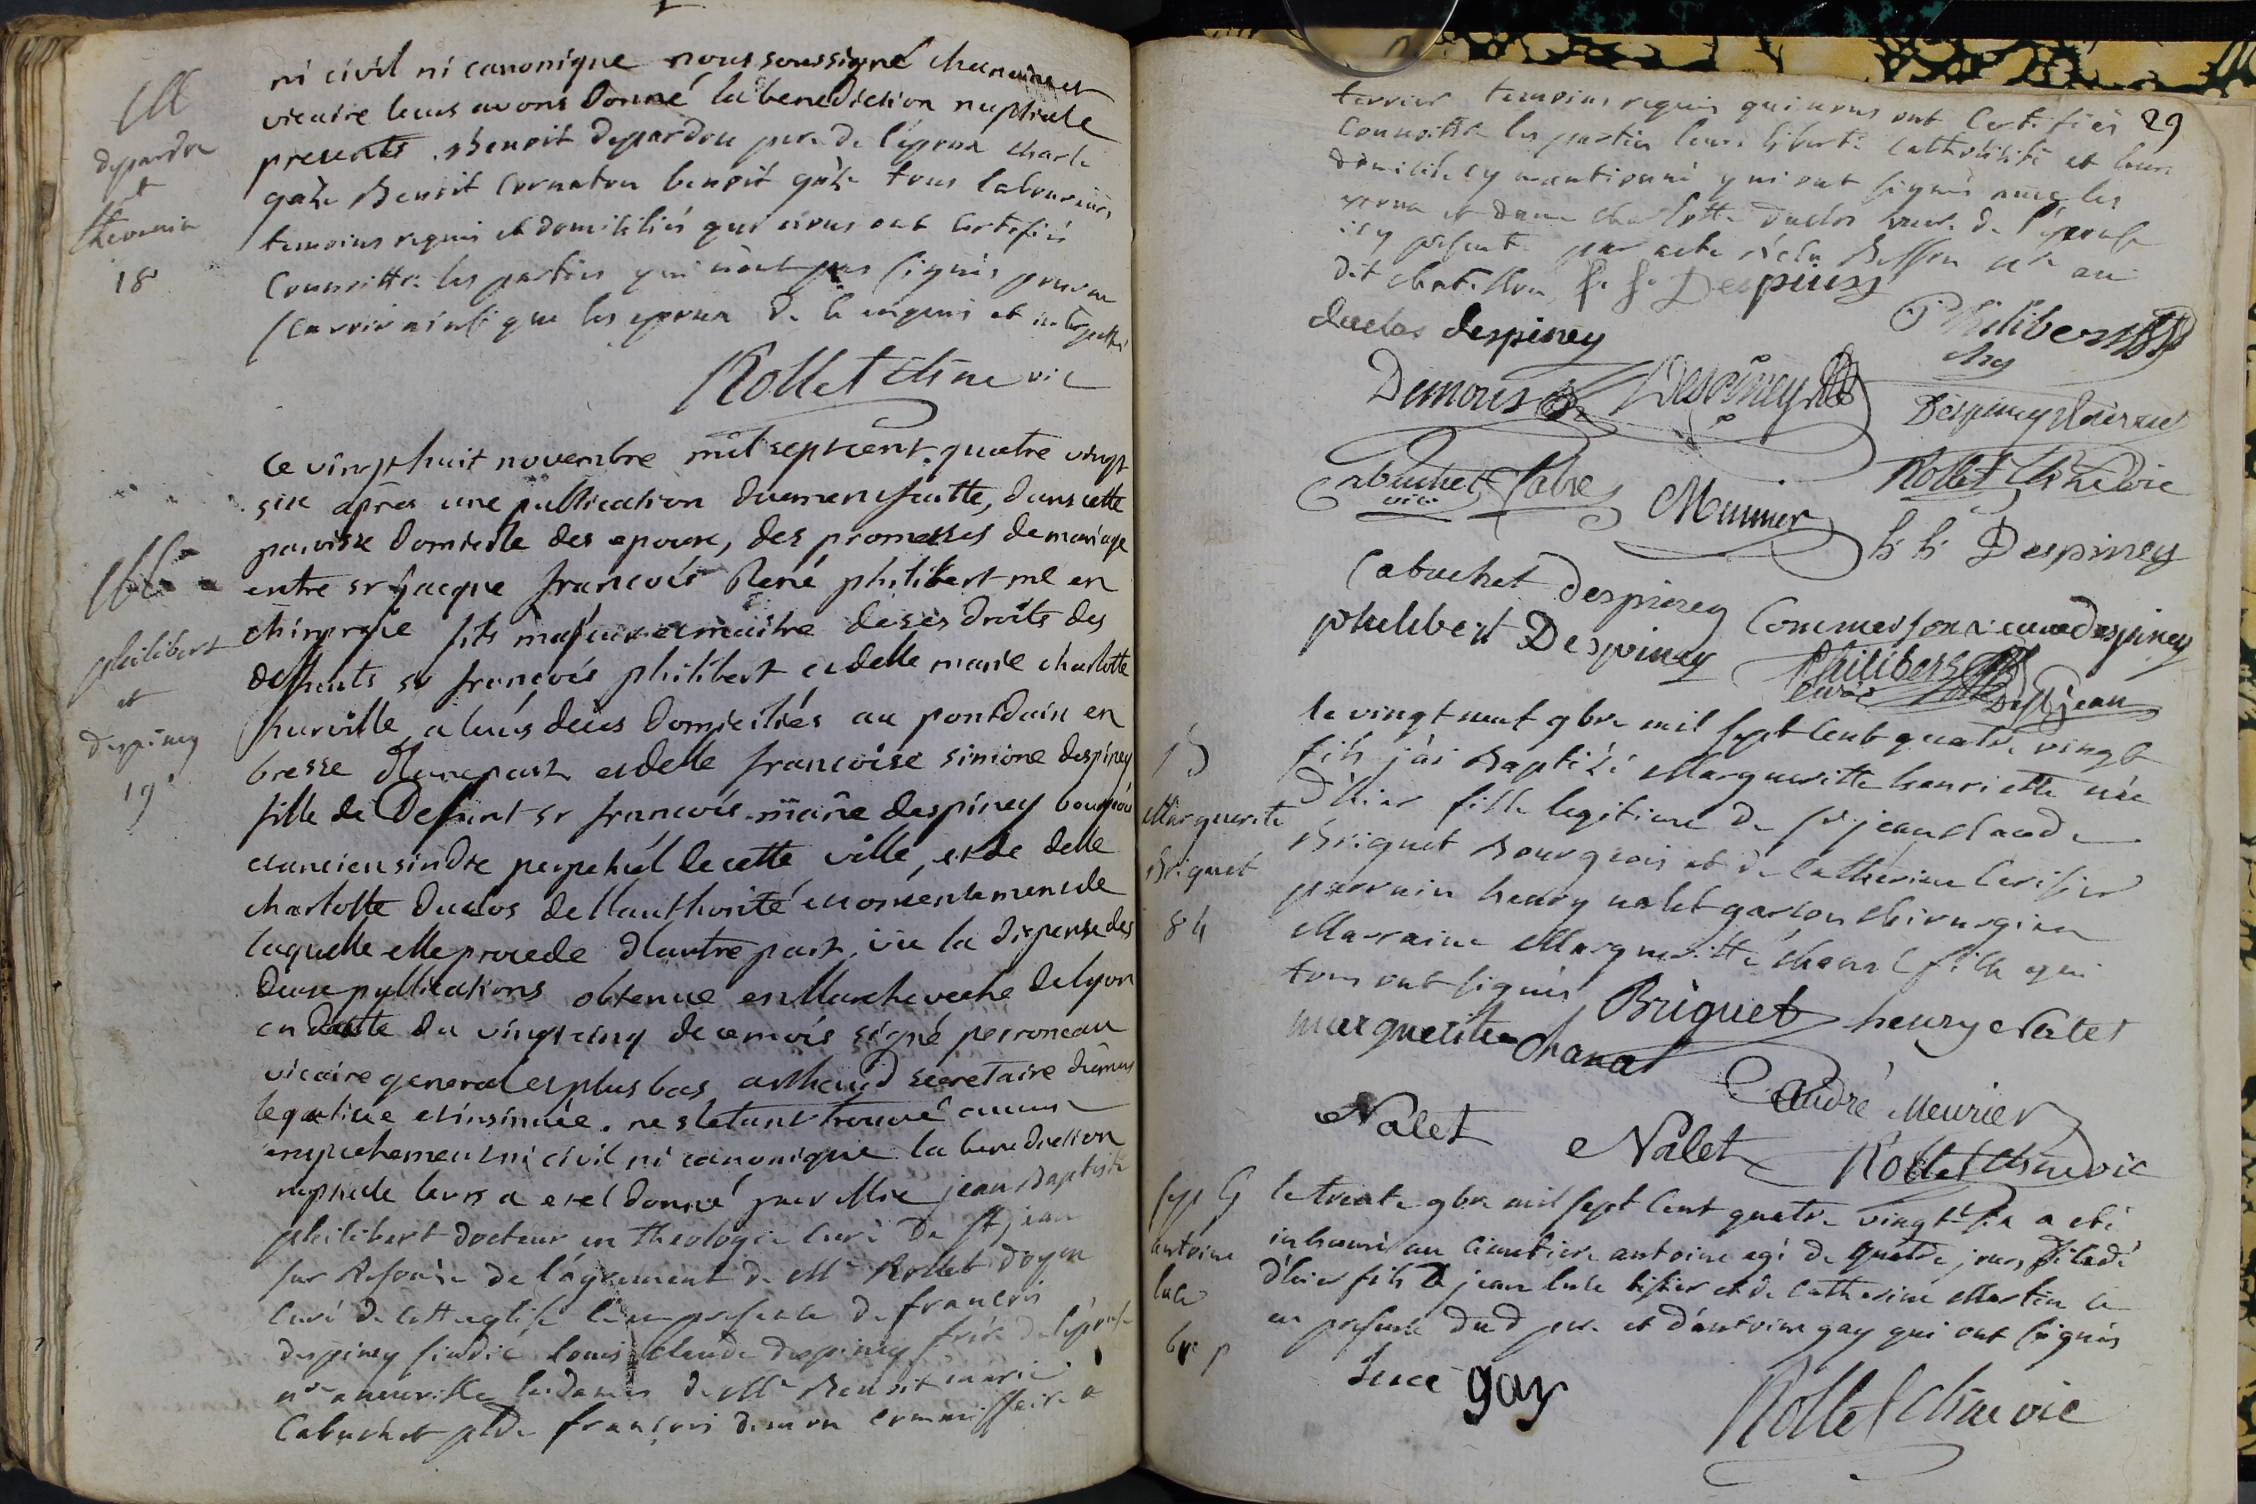 ni civil ni canonique nous soussigné chanoine et
vicaire leurs avons donné la benediction nuptiale
presents. Benoit depardon pere de l'epoux charle
Benoit Cornaton benoit tous laboureurs
temoins requis et domiciliés qui nous ont certifiés
Connoittre les parties qui n'ont pas signés pour ne
scavoir ainsi que les epoux de ce enquis et interpellés
Rollet chne vic
M
depardon
et
thevenin
18
ce vingthuit novembre mil septcent quatre vingt
six après une publication duement faitte, dans cette
paroisse domicile des epoux, des promesses de mariage
entre sr jacque francois René philibert me en
chirurgie fils majeur et maitre de ses droits des
deffunts sr francois philibert et delle marie charlotte
hurville a leurs deces domiciliés au pontdain en
bresse d'une part et delle francoise simone despiney
fille de Defunt sr francois marie despiney bourgeois
et ancien sindic perpetuel de cette ville, et de delle
charlotte duclos de l'authorité et consentement de
laquelle elle procede d'autre part. vu la dispense des
deux publications obtenue en l'archeveche de lyon
en datte du vingt cinq de ce mois signé perroneau
vicaire general et plus bas arthaud secretaire
et insinuée. ne s'etant trouvé aucun
empechement ni civil ni canonique la benediction
nuptiale leurs a eté donné par Mre jean Baptiste
philibert docteur en theologie curé De St jean
sur Resouse de l'agrement de Mr Rollet doyen
curé de cette eglise le en presence de francois
despiney sindic louis claude despiney frère de l'épouse
de Mr Benoit marie
Cabuchet françois dumon commissaire a
M
philibert
et
despiney
19
29
terrier temoins requis qui nous ont Certifiés
Connoittre les parties leurs liberté catholicité et leurs
domicile cy mentionné qui ont signés avec les
epoux et dame charlotte duclos mere de l'épouse
icy presente par acte Besson nre au
dit chatillon f. s. Despiney
duclos despiney
Philibert
chg
Dumoux
Despiney
Despiney
Cabuchet fabre
Munier
Rollet chne vic
h. h. Despiney
Cabuchet despiney
Commerson despiney
philibert Despiney
Philibert
curé de St jean
le vingt neuf 9bre mil sept cent quatre vingt
six j'ai Baptizé Marguerite henriette née
d'hier fille legitime de sr jean claude
Briquet Bourgeois et de Catherine Cerisier
parrain henry nalet garson chirurgien
Marraine Marguerite chanal fille qui
tous ont signés
Briquet
henry Nalet
marguerite chanal
andré Meurier
Nalet
Nalet
Rollet chne vic
B
Marguerite
Briquet
84
le trente 9bre mil sept Cent quatre vingt six a eté
inhumé au cimetiere antoine agé de quatre jours décédé
d'hier fils de jean luce tissier et de catherine Martin le
en presence dud pere et d'antoine gay qui ont signés
luce gay
Rollet chne vic
sep
antoine
luce